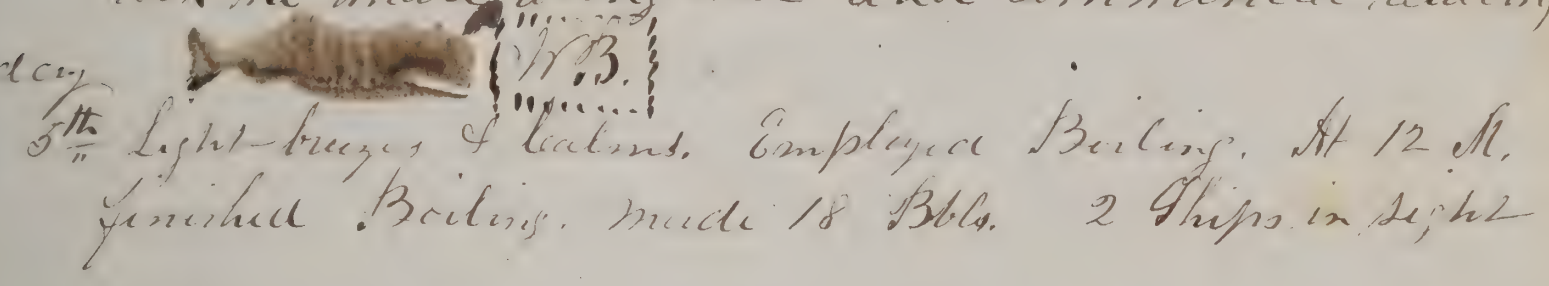 and commenced
W.B.
day
5th Light breezes & Calms. Employed Boiling. At 12 M.
finished Boiling. Made 18 Bbls. 2 Ships in sight